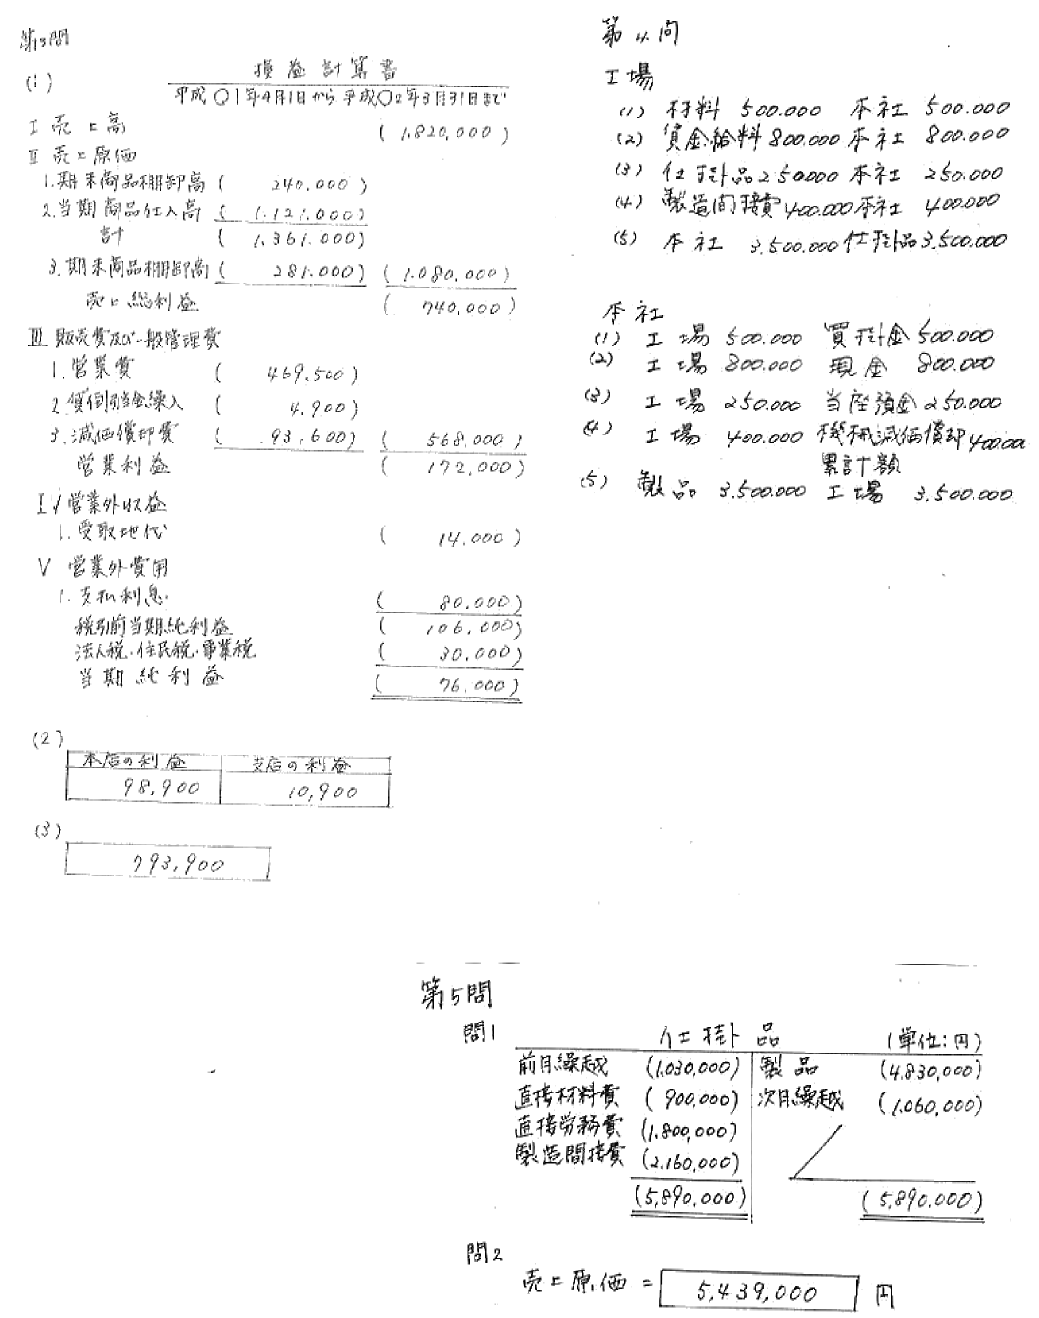 第3問
(1)
損益計算書
平成〇1年4月1日から平成〇2年3月31日まで
I 売上高 (1,820,000)
II 売上原価
1.期末商品棚卸高 ( 240,000)
2.当期商品仕入高 ( 1,121,000)
計 ( 1,361,000)
3.期末商品棚卸高 ( 281,000) (1,080,000)
売上総利益 ( 740,000)
III 販売費及び一般管理費
1.営業費 ( 469,500)
2.貸倒引当金繰入 ( 4,900)
3.減価償却費 ( 93,600) ( 568,000)
営業利益 ( 172,000)
IV 営業外収益
1.受取地代 ( 14,000)
V 営業外費用
1.支払利息 ( 80,000)
税引前当期純利益 ( 106,000)
法人税・住民税・事業税 ( 30,000)
当期純利益 ( 76,000)
(2)
本店の利益 支店の利益
98,900 10,900
(3)
793,900
第4問
工場
(1) 材料 500,000 本社 500,000
(2) 賃金給料 800,000 本社 800,000
(3) 仕掛品 250,000 本社 250,000
(4) 製造間接費 400,000 本社 400,000
(5) 本社 3,500,000 仕掛品 3,500,000
本社
(1) 工場 500,000 買掛金 500,000
(2) 工場 800,000 現金 800,000
(3) 工場 250,000 当座預金 250,000
(4) 工場 400,000 機械減価償却 400,000
累計額
(5) 製品 3,500,000 工場 3,500,000
第5問
問1
仕掛品 (単位:円)
前月繰越 (1,030,000) 製品 (4,830,000)
直接材料費 ( 900,000) 次月繰越 (1,060,000)
直接労務費 (1,800,000)
製造間接費 (2,160,000)
(5,890,000) (5,890,000)
問2
売上原価 = 5,439,000 円